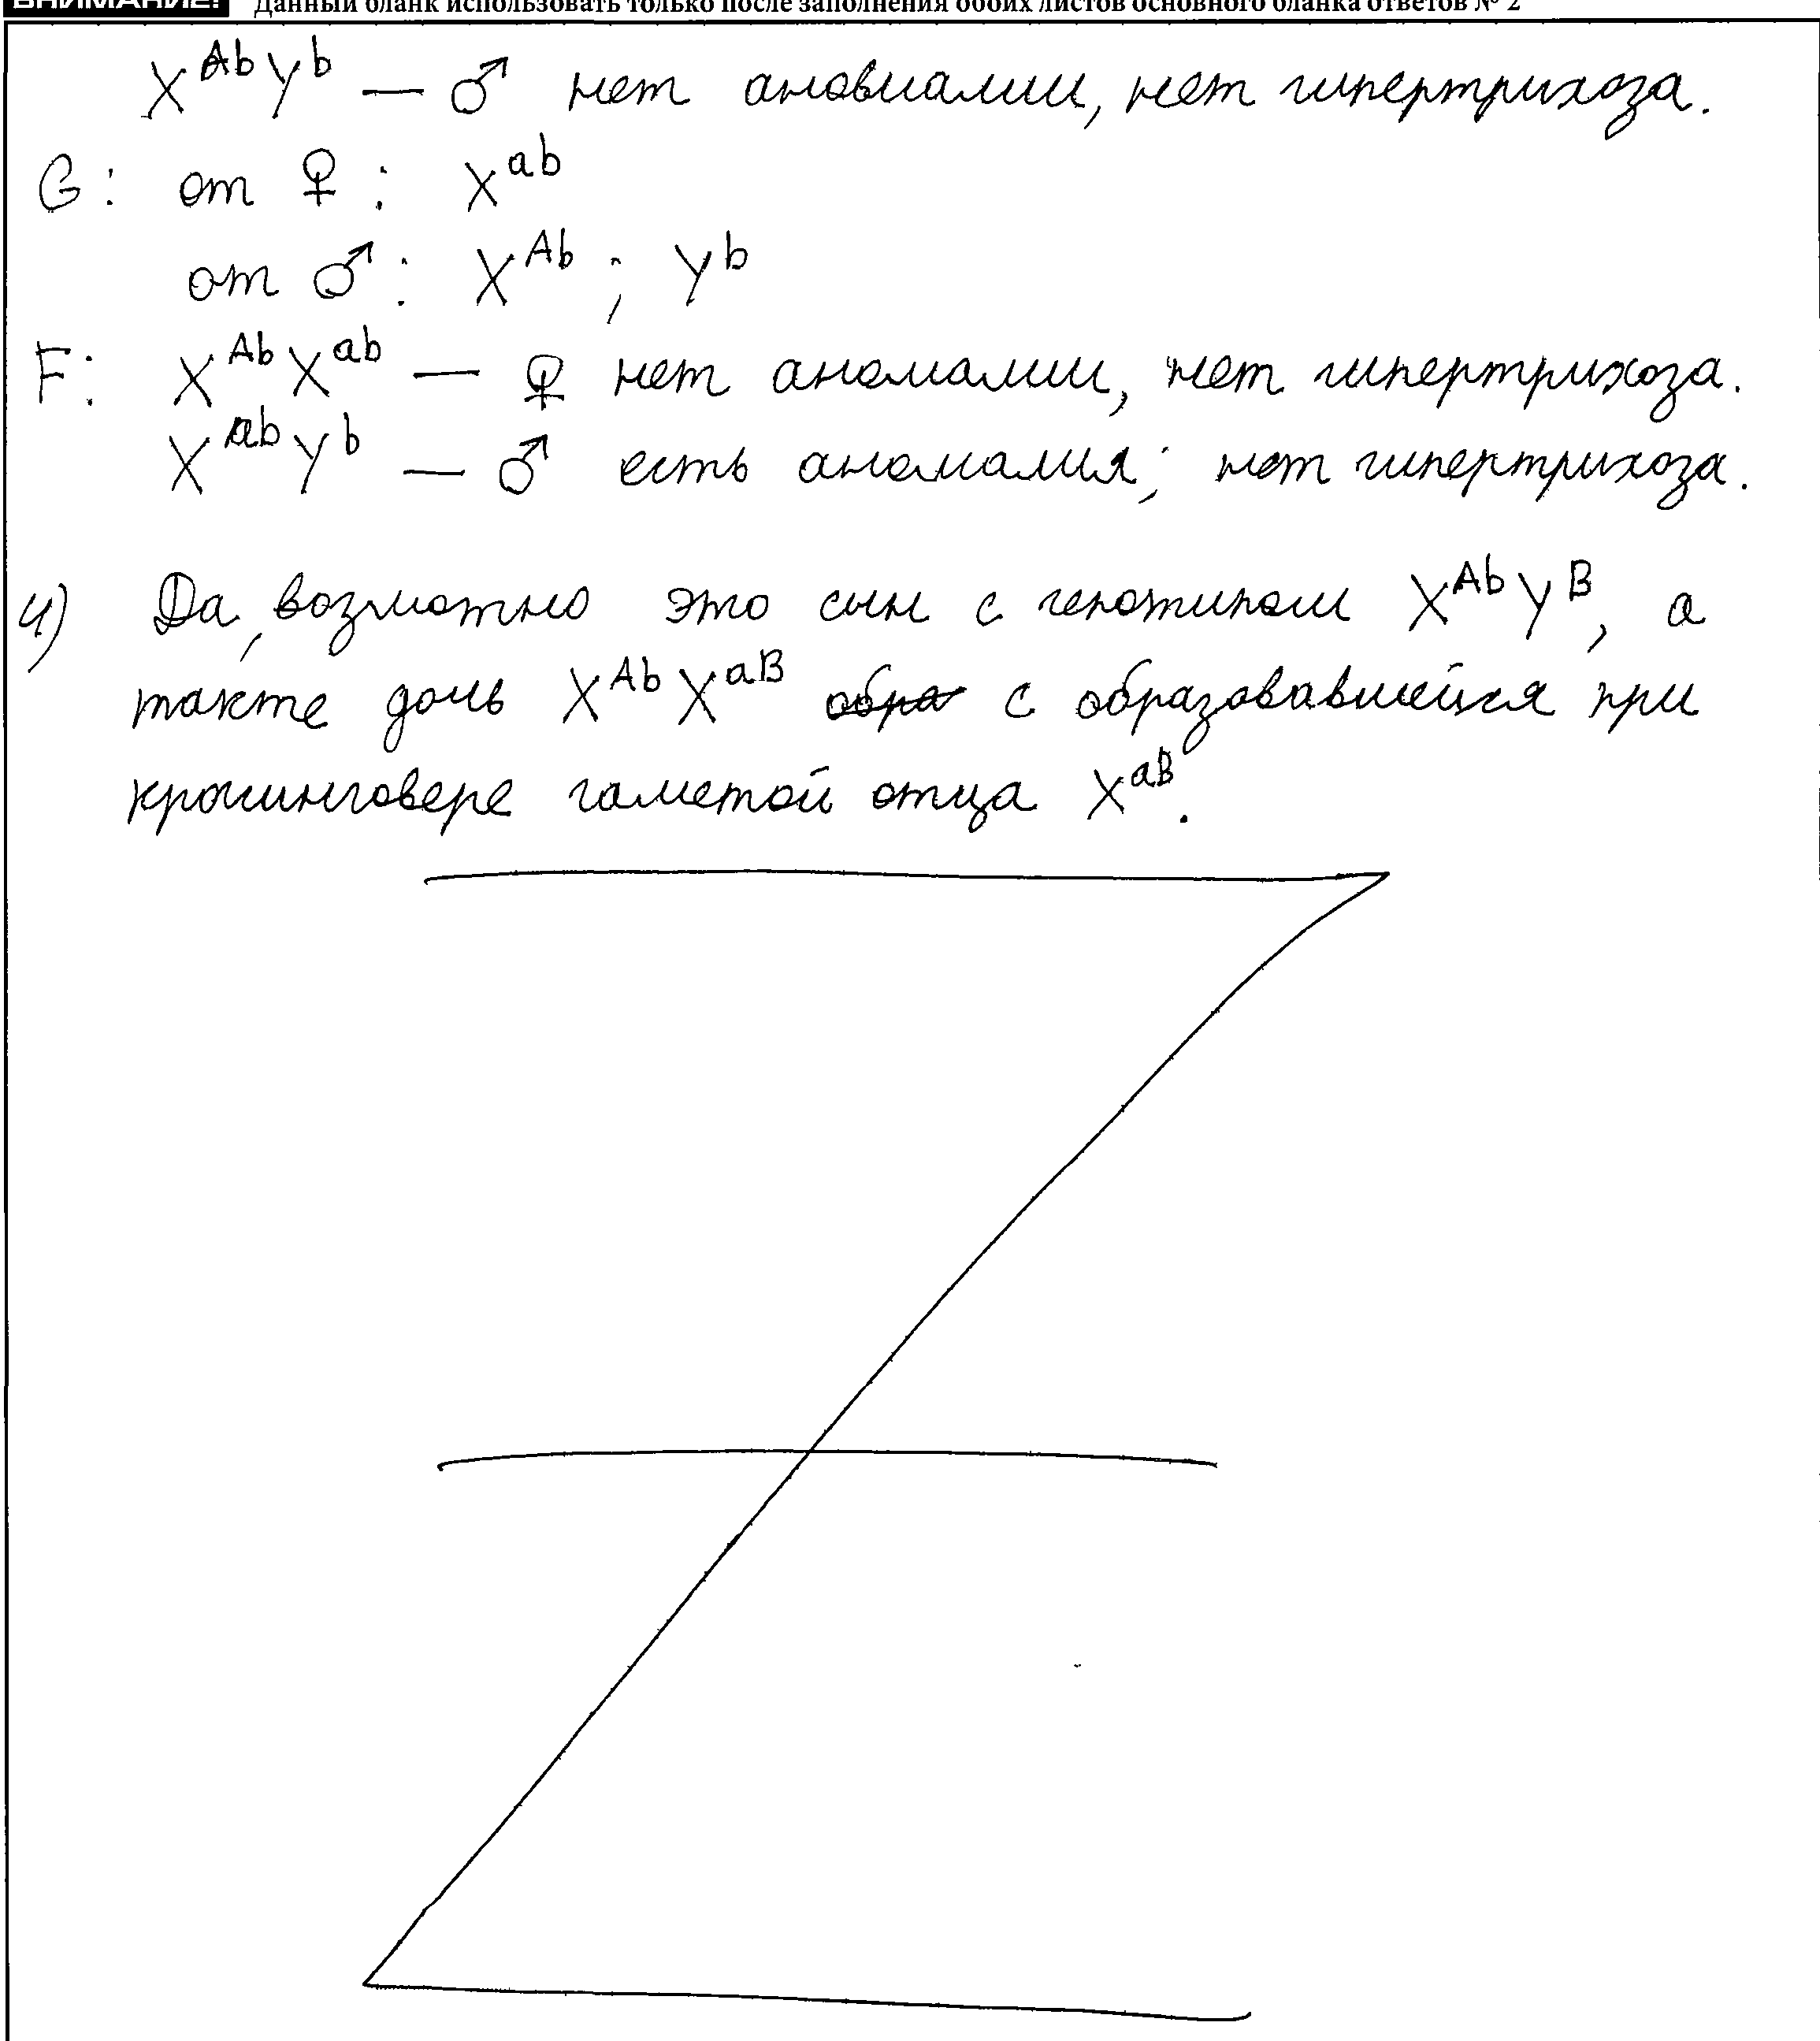 ВНИМАНИЕ! Данный бланк использовать только после заполнения обоих листов основного бланка ответов № 2
X^Ab Y^b — ♂ нет аномалии, нет гипертрихоза.
G: от ♀: X^ab
от ♂: X^Ab ; Y^b
F: X^Ab X^ab — ♀ нет аномалии, нет гипертрихоза.
X^ab Y^b — ♂ есть аномалия; нет гипертрихоза.
4) Да, возможно это сын с генотипом X^Ab Y^B, а
также дочь X^Ab X^aB обра с образовавшейся при
кроссинговере гаметой отца X^aB.